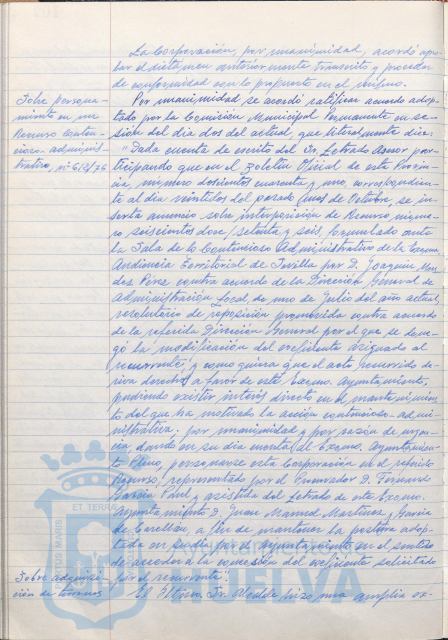 La Corporación, por unanimidad, acordó apro-
bar el dictamen anteriormente transcrito y proceder
de conformidad con lo propuesto en el mismo.
Sobre persona-
miento en un
Recurso Conten-
cioso-adminis-
trativo, nº 612/76
Por unanimidad se acordó ratificar acuerdo adop-
tado por la Comisión Municipal Permanente en se-
sión del día dos del actual, que literalmente dice:
"Dada cuenta de escrito del Sr. Letrado Asesor par-
ticipando que en el Boletín Oficial de esta Provin-
cia, número doscientos cuarenta y uno, correspondien-
te al día veintidos del pasado mes de Octubre, se in-
serta anuncio sobre interposición de Recurso núme-
ro seiscientos doce/setenta y seis, formulado ante
la Sala de lo Contencioso Administrativo de la Excma.
Audiencia Territorial de Sevilla por D. Joaquin
Perez contra acuerdo de la Dirección General de
Administración Local, de uno de Julio del año actual,
resolutorio de reposición promovida contra acuerdo
de la referida Dirección General por el que se dene-
gó la modificación del coeficiente asignado al
recurrente; y como quiera que el acto recurrido de-
riva derechos a favor de este Excmo. Ayuntamiento,
pudiendo existir interés directo en el mantenimien-
to del que ha motivado la acción contencioso-admi-
nistrativa, por unanimidad y por razón de urgen-
cia, dando en su día cuenta al Excmo. Ayuntamien-
to Pleno, personarse esta Corporación en el referido
Recurso, representado por el Procurador D. Fernando
García Paúl y asistida del Letrado de este Excmo.
Ayuntamiento D. Juan Manuel Martínez y García
de Carellán, a fin de mantener la postura adop-
tada en su día por el Ayuntamiento en el sentido
de acceder a la concesión del coeficiente solicitado
por el recurrente."
Sobre adquisi-
ción de terrenos
El Iltmo. Sr. Alcalde hizo una amplia ex-
ET TERRA
HUELVA